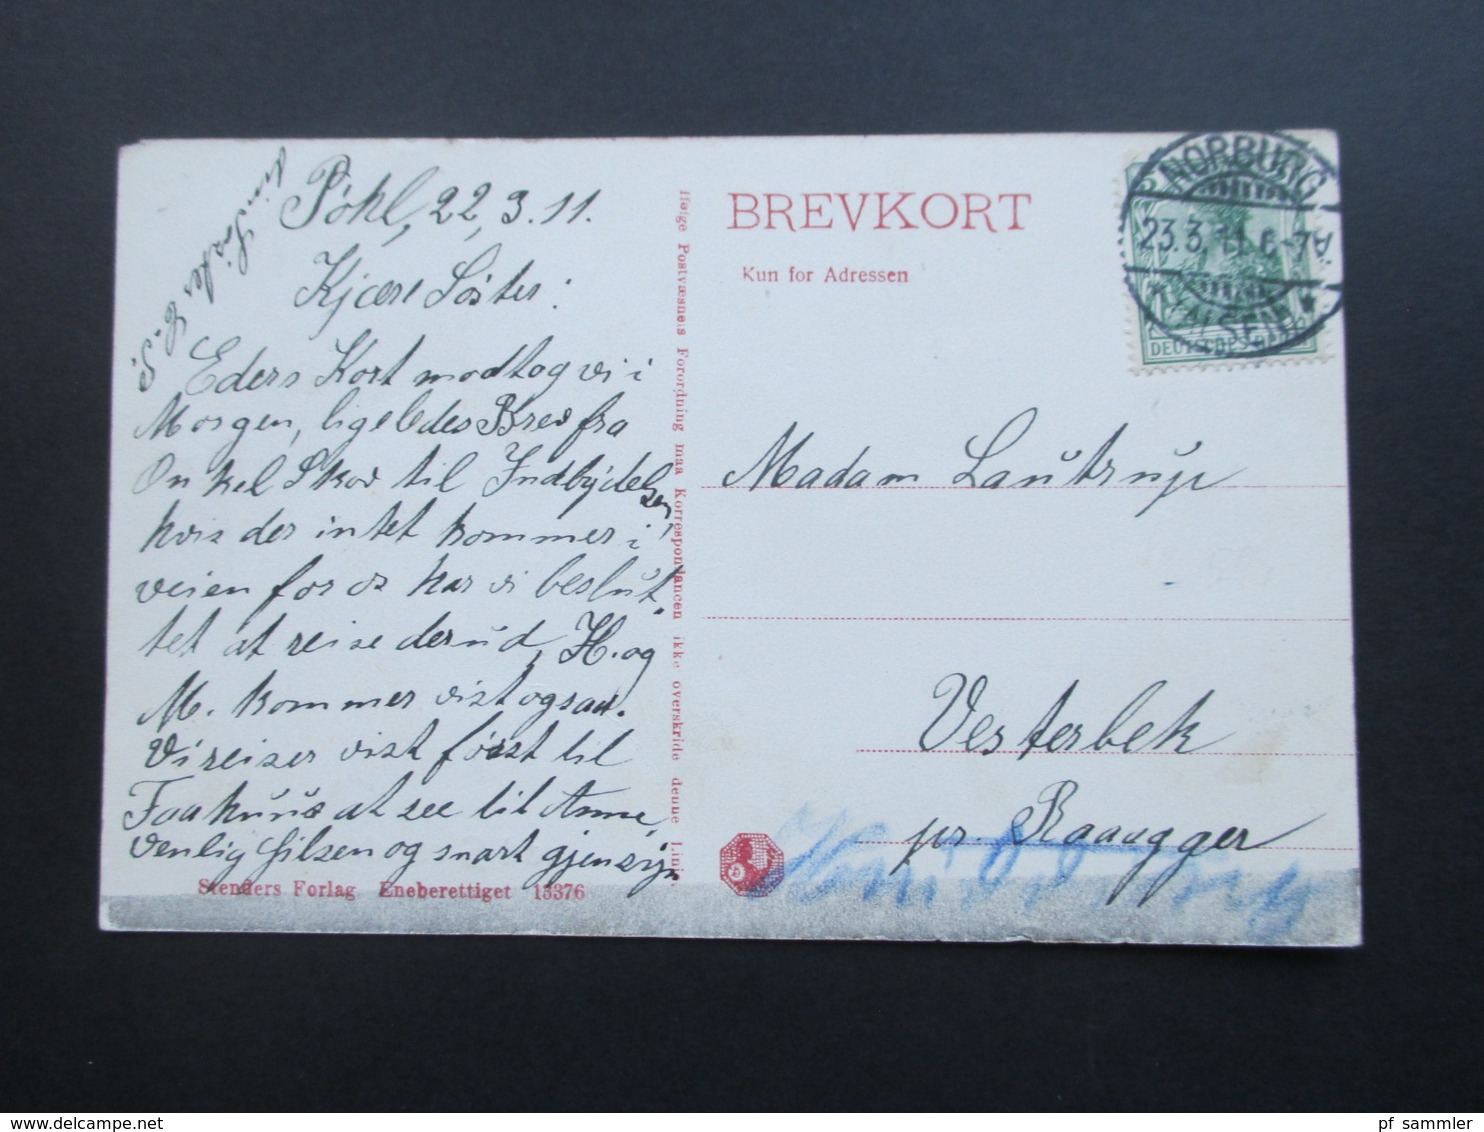 Pöhl, 22,3.11.
Kjære Söster:
Eders Kort modtog vi i
Morgen, ligeledes Brev fra
Onkel Skov til Indbydel
sen,
hvis der intet kommer i
veien for os har vi beslut.
tet at reise derud, H. og
M. kommer vist ogsaa.
Vi reiser vist först til
Faahuus at see til Anne,
venlig hilsen og snart gjensyn
din Söster E. S.
Stenders Forlag Eneberettiget 13376
Ifølge Postvæsnets Forordning maa Korrespondancen ikke overskride denne Linje
BREVKORT
Kun for Adressen
NORBURG
23.3.11.6-7
* (ALSEN) *
DEUTSCHES REICH
Madam Lautrup
Vesterbek
pr.